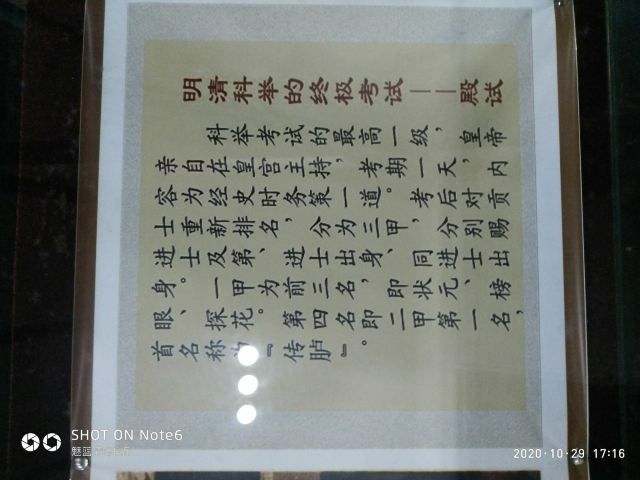 明清科举的终极考试——殿试
科举考试的最高一级，皇帝
亲自在皇宫主持，考期一天，内
容为经史时务策一道。考后对贡
士重新排名，分为三甲，分别赐
进士及第、进士出身、同进士出
身。一甲为前三名，即状元、榜
眼、探花。第四名即二甲第一名，
首名称为『传胪』。
SHOT ON Note6
魅蓝
2020·10·29 17:16